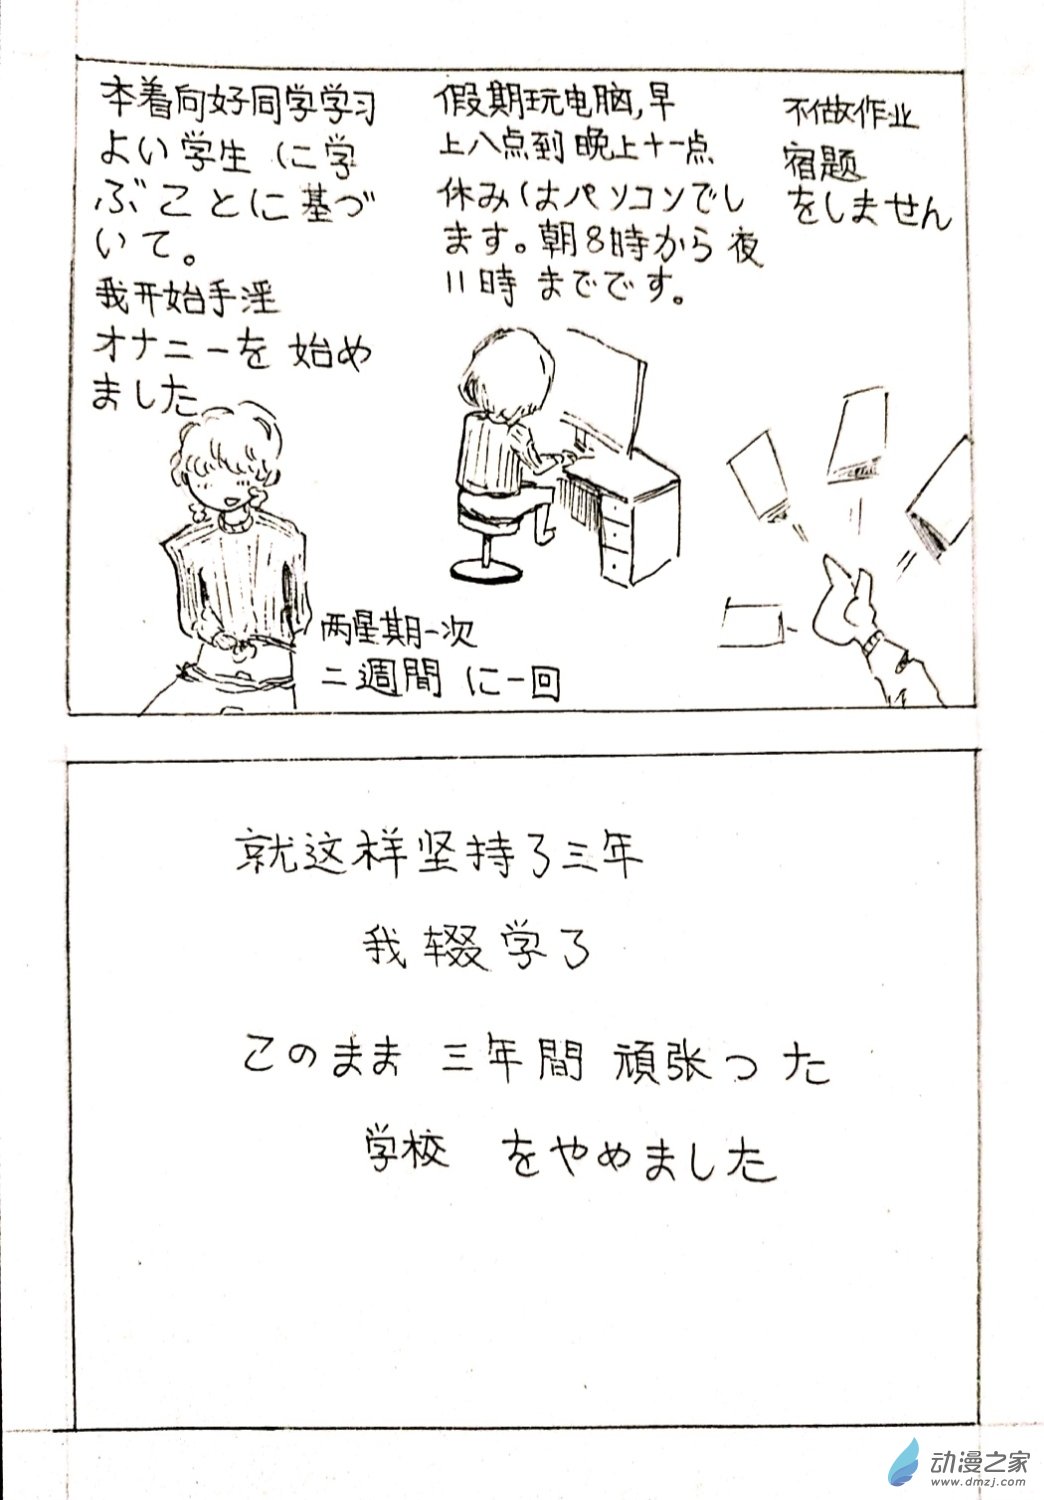 本着向好同学学习
よい学生に学
ぶことに基づ
いて。
我开始手淫
オナニーを始め
ました
两星期一次
二週間に一回
假期玩电脑,早
上八点到晚上十一点
休みはパソコンでし
ます。朝8時から夜
11時までです。
不做作业
宿题
をしません
就这样坚持了三年
我辍学了
このまま三年間頑張つた
学校をやめました
动漫之家
www.dmzj.com